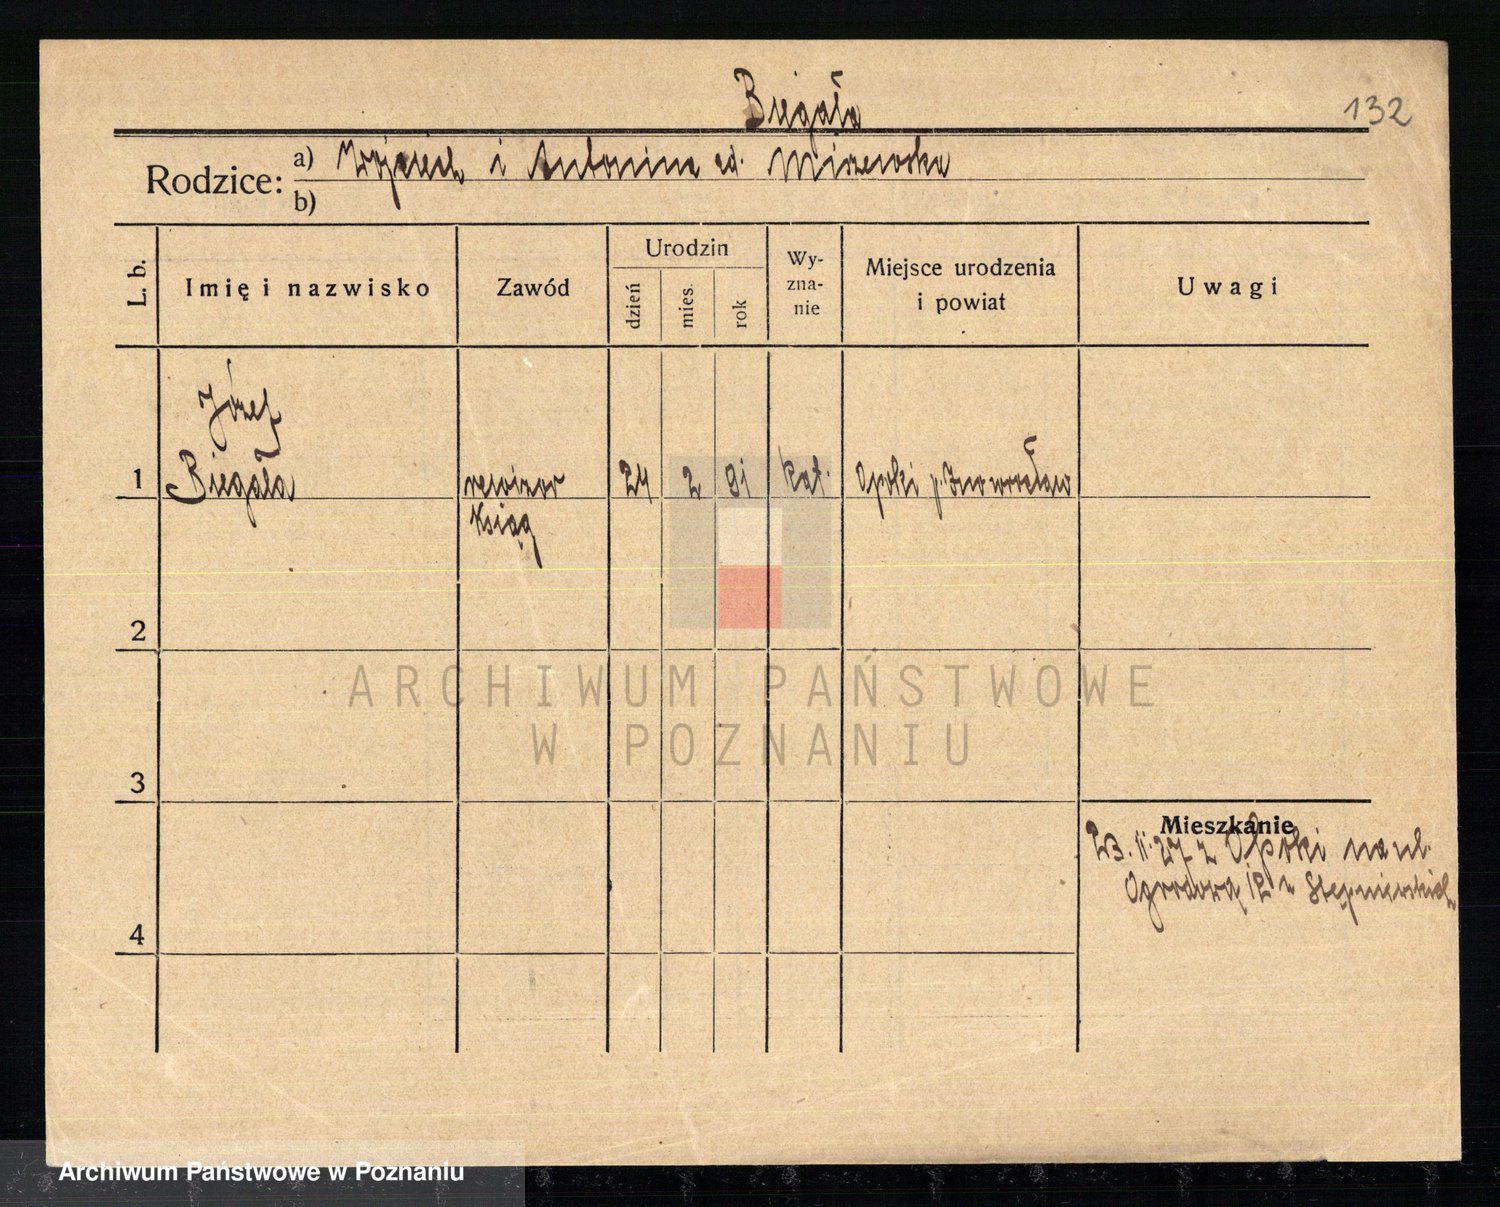 Biegała
132
Rodzice: a) Wojciech i Antonina zd. Miszewska
b)
L. b.
Imię i nazwisko
Zawód
Urodzin
dzień
mies.
rok
Wy-
zna-
nie
Miejsce urodzenia
i powiat
Uwagi
Józef
1 Biegała rewizor 24 2 91 kat. Opoki p. Inowrocław
ksiąg
2
3
4
Mieszkanie
23. 11. 27 z Opoki na ul.
Ogrodową 12 u Stępniewskich
ARCHIWUM PAŃSTWOWE
W POZNANIU
Archiwum Państwowe w Poznaniu